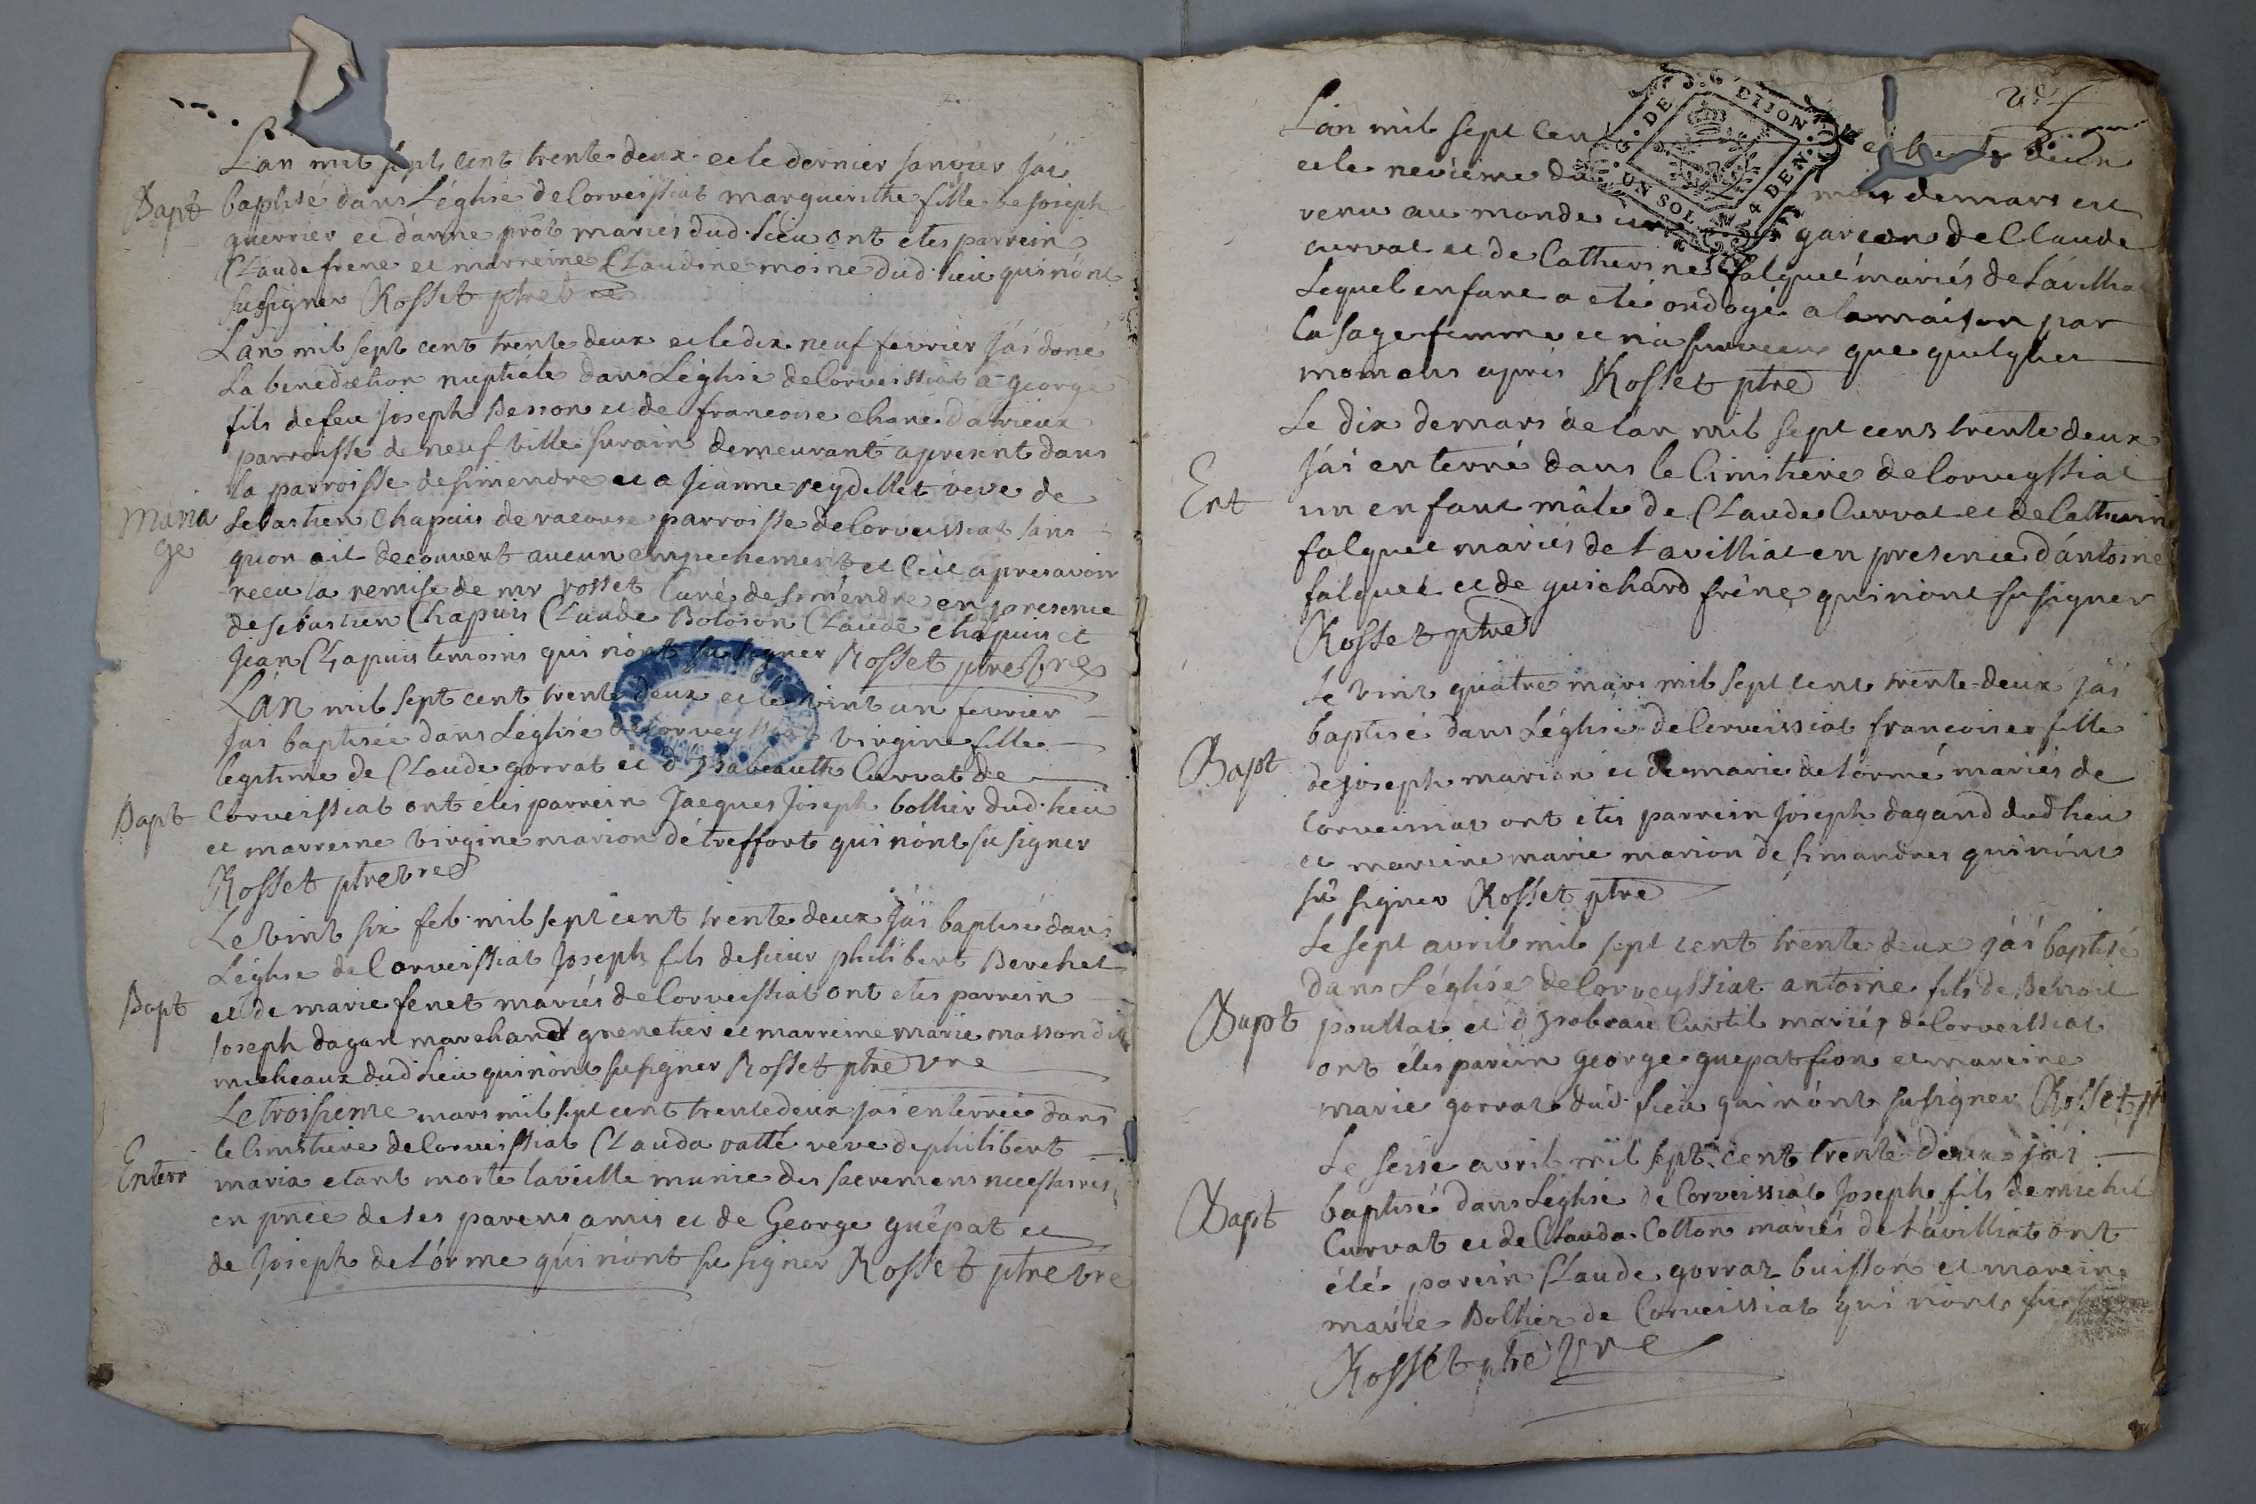 L'an mil sept cent trente deux et le dernier janvier j'ai
Bapt baptisé dans L'église de Corveissiat marguerithe fille de joseph
guerrier et d'anne prôt mariés dud. lieu ont etés parrein
Claude frene et marreine Claudine moine dud. lieu qui n'ont
su signer Rosset ptre
L'an mil sept cent trente deux et le dix neuf fevrier j'ai doné
La benediction nuptiale dans L'église de Corveissiat a george
fils de feu joseph Besson et de francoise Chané
parroisse de neufville surain demeurant apresent dans
la parroisse de simendre et a jeanne reydellet veve de
Maria
ge
sebastien Chapuis de racouse parroisse de Corveissiat sans
quon ait decouvert aucun empechement et Ce apres avoir
recu la remise de mr rosset Curé de simendre en presence
de sebastien Chapuis Claude Boloson Claude Chapuis et
jean Chapuis temoins qui n'ont su signer Rosset ptrebre
L'an mil sept cent trente deux et le vint un fevrier
j'ai baptisée dans L'église de Corveyssiat virgine fille
legitime de Claude gorrat et d'ysabeauth Curvat de
Bapt Corveissiat ont étés parrein Jacques Joseph bollier dud. lieu
et marreine virgine marion de treffort qui n'ont su signer
Rosset ptrebre
Le vint six feb. mil sept cent trente deux j'ai baptisé dans
L'église de Corveissiat Joseph fils de sieur philibert Berchet
Bapt et de marie fenet mariés de Corveissiat ont etés parrein
Joseph dagan marchand grenetier et marreine marie masson
micheaux dud lieu qui n'ont su signer Rosset ptre vre
Le troisieme mars mil sept cent trente deux j'ai enterrée dans
le Cimetiere de Corveissiat Clauda vatté veve de philibert
Enterr maria etant morte la veille munie des sacremens necessaires
en pnce de ses parens amis et de George guêpat et
de Joseph delorme qui n'ont su signer Rosset ptrebre
G. DE ETION.
UN SOL 4 DEN.
L'an mil sept cen et trente deux
et le neuvieme du mois de mars est
venu au monde un garcon de Claude
curvat et de Catherine falquet mariés de Lavilliat
Lequel enfant a eté ondoyé a la maison par
la sage femme et n'a survecu que quelques
momens apres Rosset ptre
Le dix de mars de l'an mil sept cens trente deux
j'ai enterré dans le Cimetiere de Corveyssiat
Ent un enfant mâle de Claude Curvat et de Catherine
falquet mariés de Lavilliat en presence d'antoine
falquet et de guichard frêne qui n'ont su signer
Rosset ptre
Le vint quatre mars mil sept cent trente-deux j'ai
baptisé dans L'église de Corveissiat francoise fille
Bapt de joseph marion et de marie delormé mariés de
Corveissiat ont etés parrein joseph dagand dud lieu
et marreine marie marion de simandres qui n'ont
su signer Rosset ptre
Le sept avril mil sept cent trente deux j'ai baptisé
dans L'église de Corveyssiat antoine fils de Benoit
Bapt poullat et d'ysabeau Curtil mariés de Corveissiat
ont étés parein George guepat fion et mareine
marie gorrat dud. lieu qui n'ont su signer Rosset pt
Le seise avril mil sept cent trente deux j'ai
Bapt baptisé dans L'église de Corveissiat Joseph fils de michel
Curvat et de Clauda Colton mariés de Lavilliat ont
été parein Claude gorraz buisson et mareine
marie Bollier de Corveissiat qui n'ont su
Rosset ptrebre